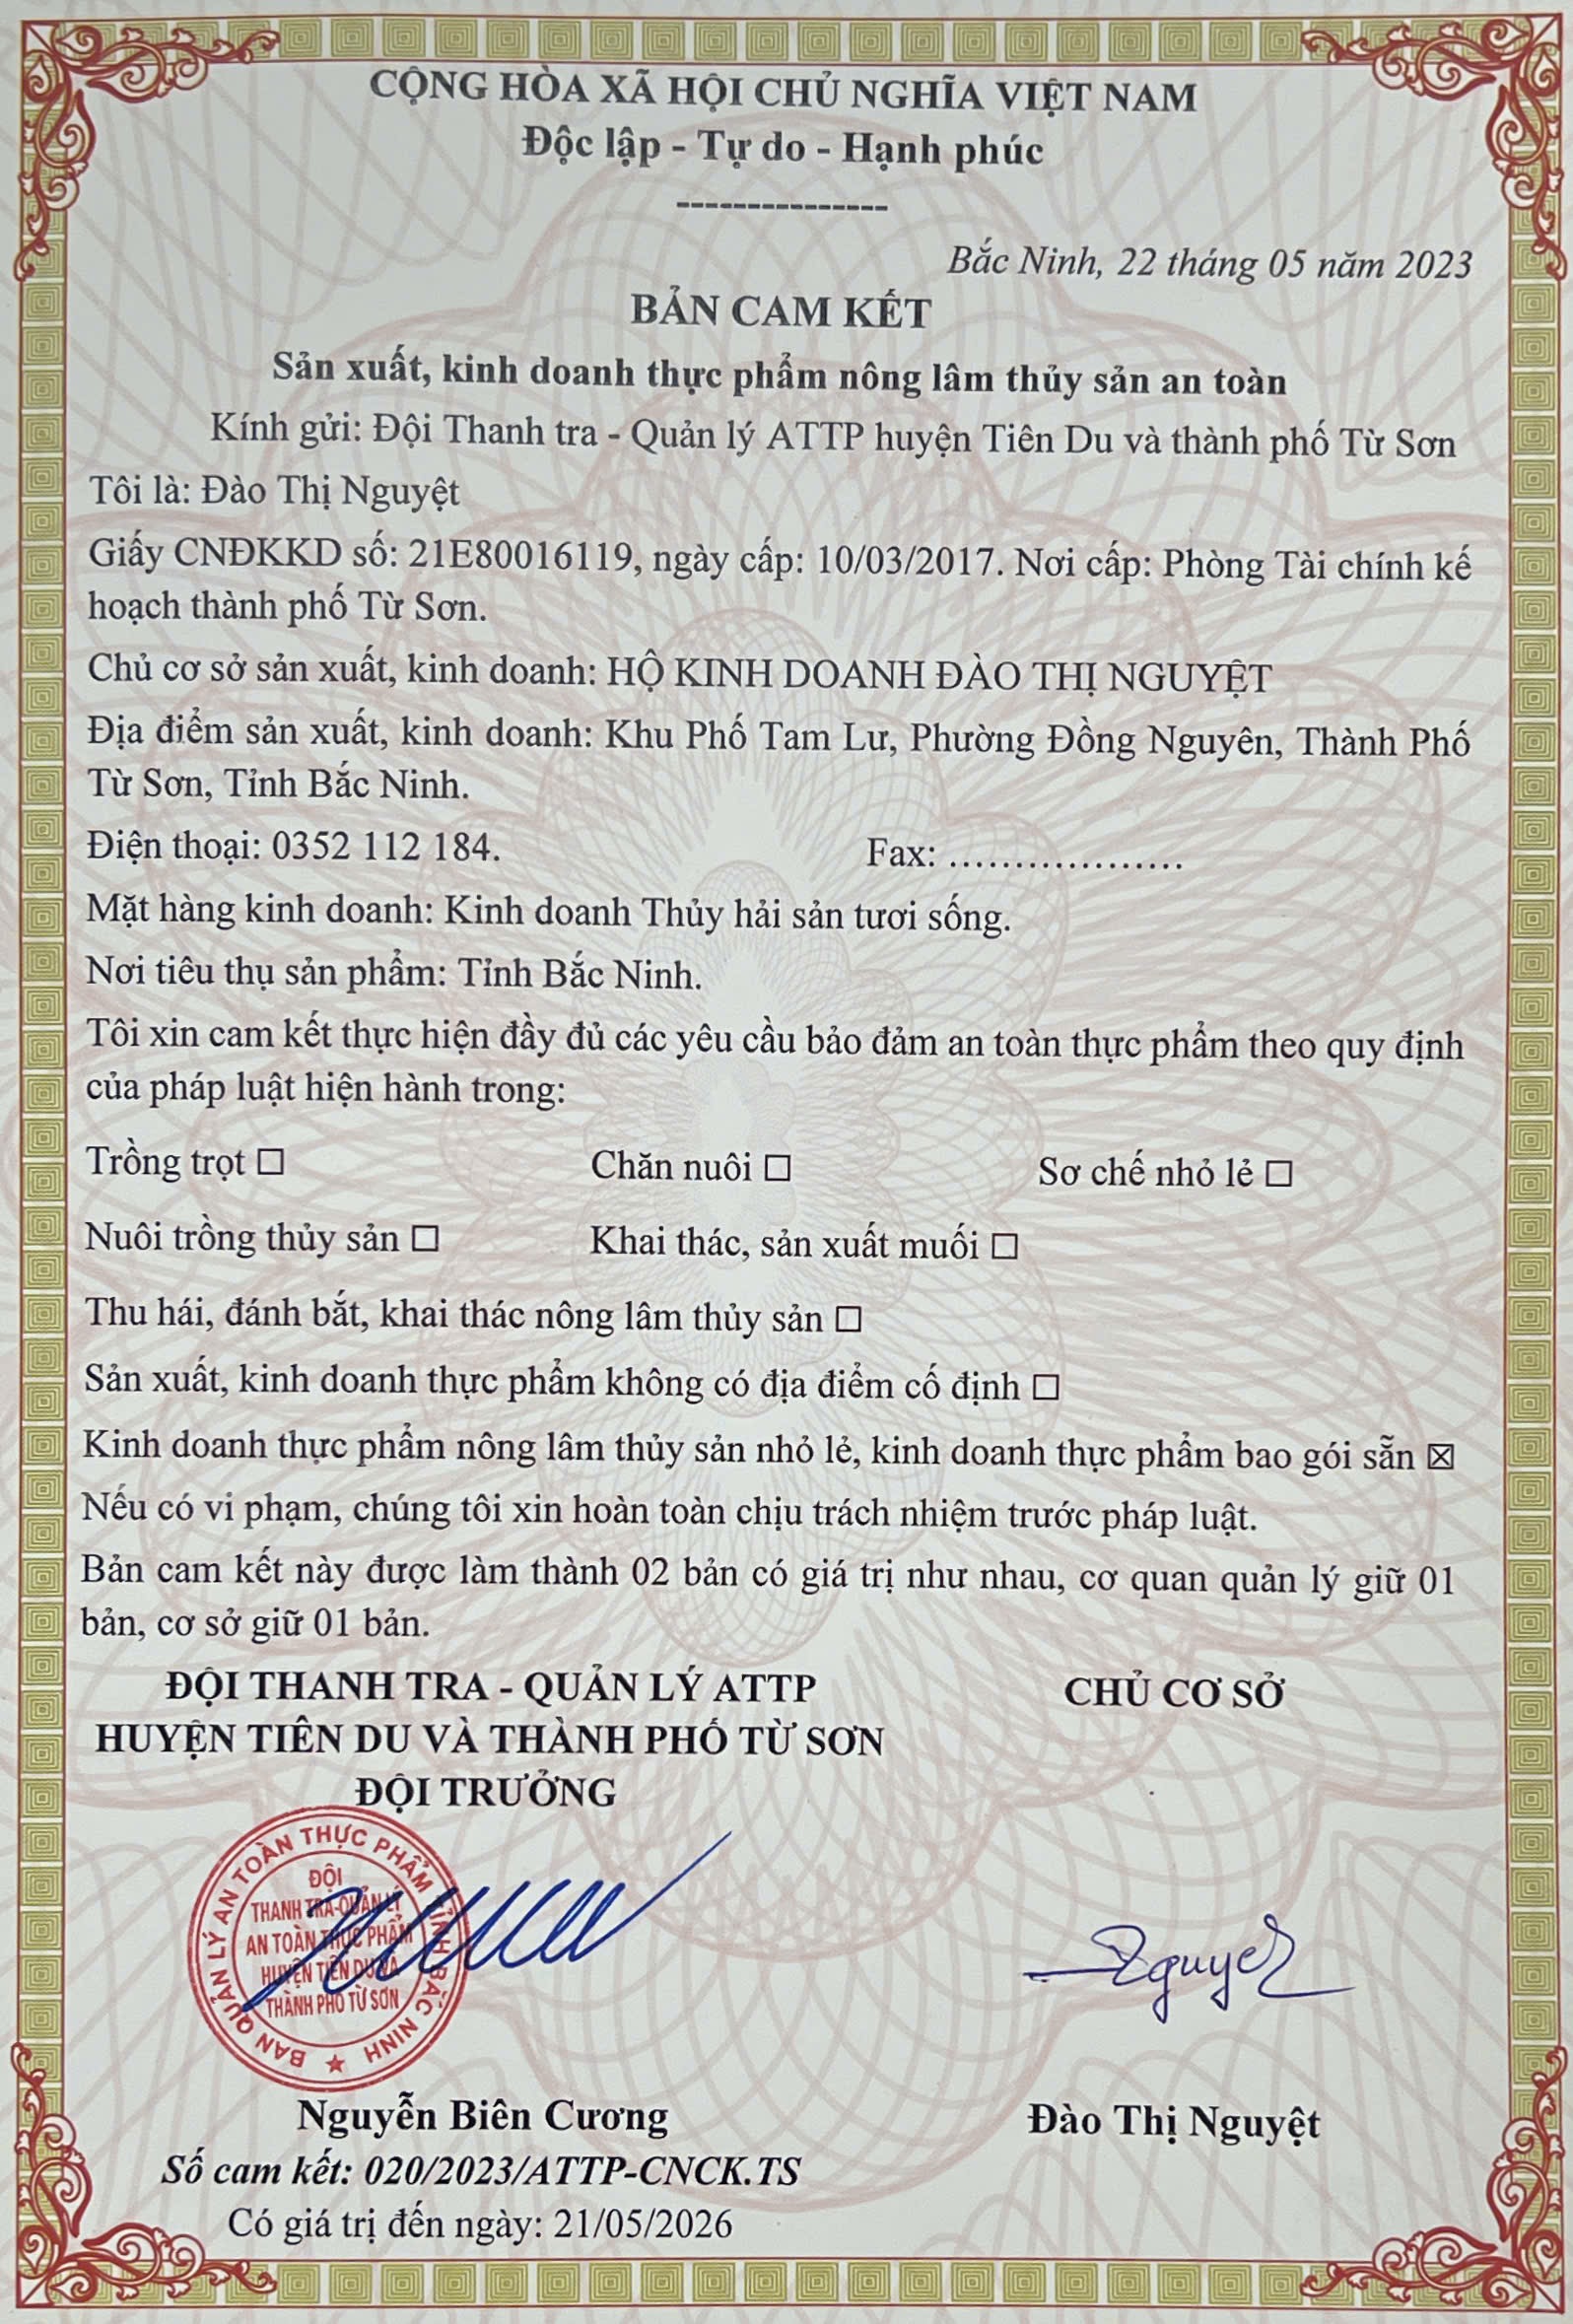 CỘNG HÒA XÃ HỘI CHỦ NGHĨA VIỆT NAM
Độc lập - Tự do - Hạnh phúc
---------------
Bắc Ninh, 22 tháng 05 năm 2023
BẢN CAM KẾT
Sản xuất, kinh doanh thực phẩm nông lâm thủy sản an toàn
Kính gửi: Đội Thanh tra - Quản lý ATTP huyện Tiên Du và thành phố Từ Sơn
Tôi là: Đào Thị Nguyệt
Giấy CNĐKKD số: 21E80016119, ngày cấp: 10/03/2017. Nơi cấp: Phòng Tài chính kế
hoạch thành phố Từ Sơn.
Chủ cơ sở sản xuất, kinh doanh: HỘ KINH DOANH ĐÀO THỊ NGUYỆT
Địa điểm sản xuất, kinh doanh: Khu Phố Tam Lư, Phường Đồng Nguyên, Thành Phố
Từ Sơn, Tỉnh Bắc Ninh.
Điện thoại: 0352 112 184. Fax: ..................
Mặt hàng kinh doanh: Kinh doanh Thủy hải sản tươi sống.
Nơi tiêu thụ sản phẩm: Tỉnh Bắc Ninh.
Tôi xin cam kết thực hiện đầy đủ các yêu cầu bảo đảm an toàn thực phẩm theo quy định
của pháp luật hiện hành trong:
Trồng trọt ☐ Chăn nuôi ☐ Sơ chế nhỏ lẻ ☐
Nuôi trồng thủy sản ☐ Khai thác, sản xuất muối ☐
Thu hái, đánh bắt, khai thác nông lâm thủy sản ☐
Sản xuất, kinh doanh thực phẩm không có địa điểm cố định ☐
Kinh doanh thực phẩm nông lâm thủy sản nhỏ lẻ, kinh doanh thực phẩm bao gói sẵn ☒
Nếu có vi phạm, chúng tôi xin hoàn toàn chịu trách nhiệm trước pháp luật.
Bản cam kết này được làm thành 02 bản có giá trị như nhau, cơ quan quản lý giữ 01
bản, cơ sở giữ 01 bản.
ĐỘI THANH TRA - QUẢN LÝ ATTP
HUYỆN TIÊN DU VÀ THÀNH PHỐ TỪ SƠN
ĐỘI TRƯỞNG
CHỦ CƠ SỞ
BAN QUẢN LÝ AN TOÀN THỰC PHẨM TỈNH BẮC NINH
ĐỘI
THANH TRA-QUẢN LÝ
AN TOÀN THỰC PHẨM
HUYỆN TIÊN DU VÀ
THÀNH PHỐ TỪ SƠN
Nguyệt
Nguyễn Biên Cương
Đào Thị Nguyệt
Số cam kết: 020/2023/ATTP-CNCK.TS
Có giá trị đến ngày: 21/05/2026